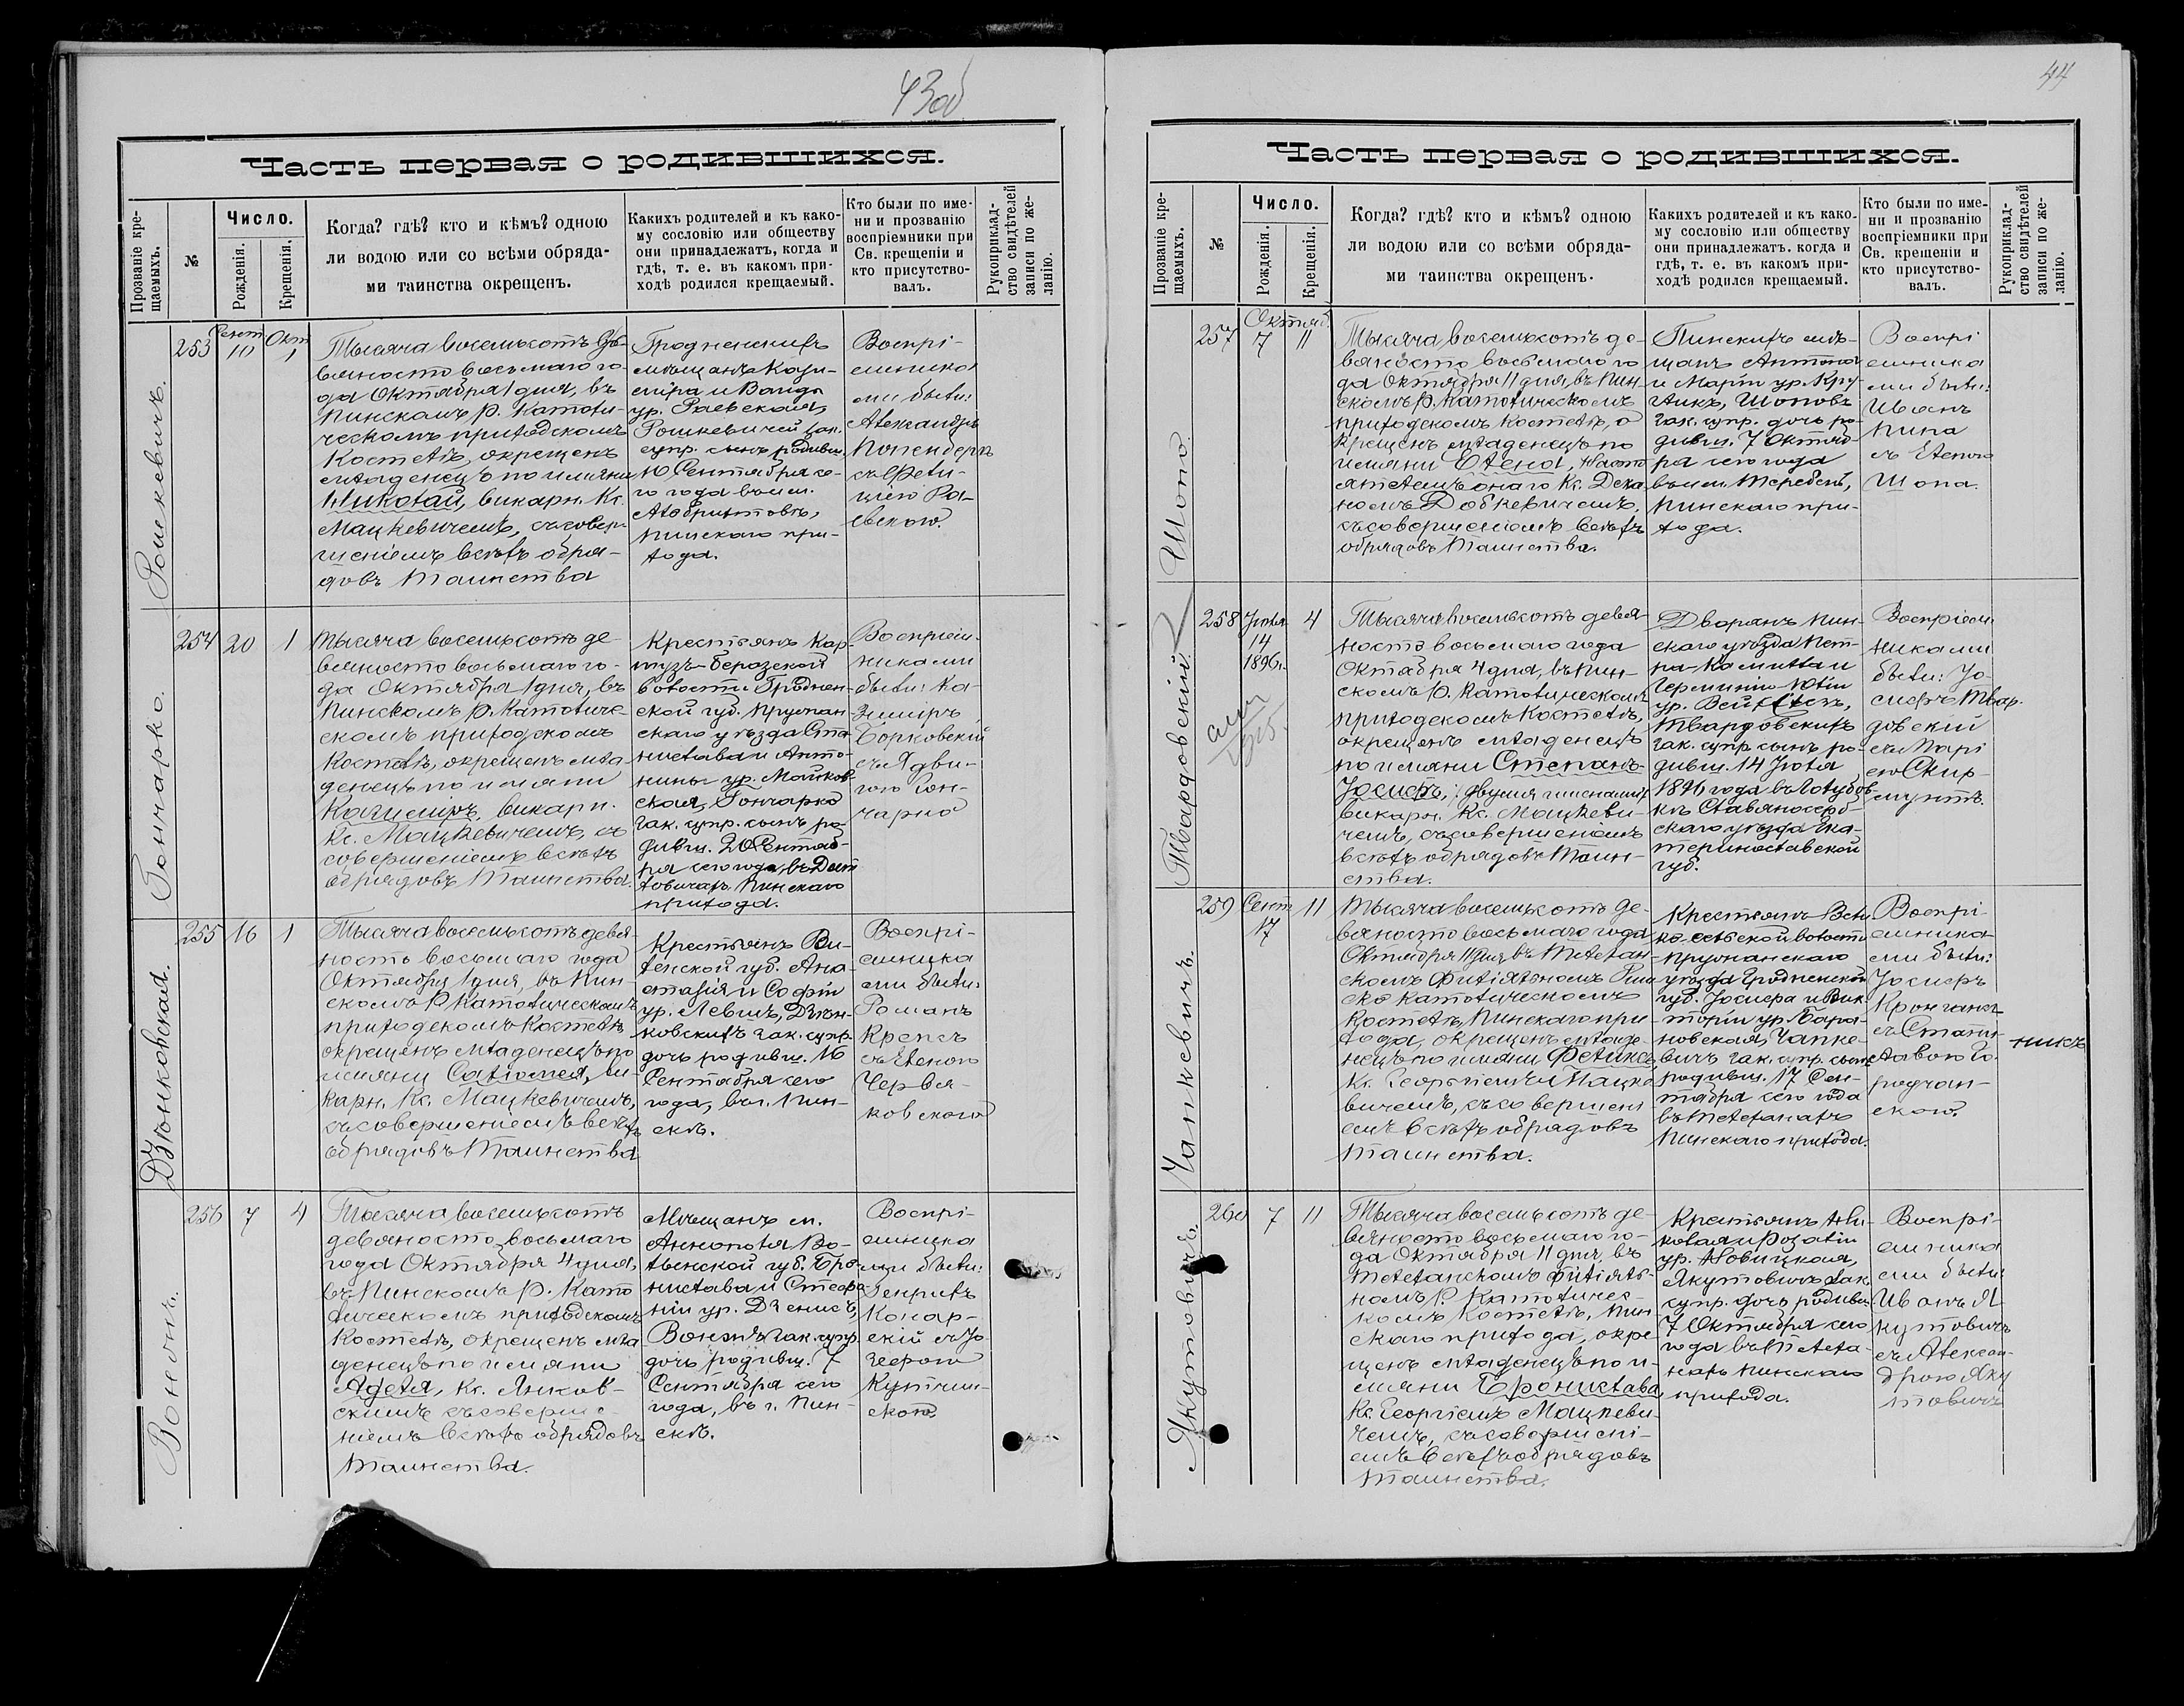 43об
Часть первая о родившихся.
Прозваніе кре-
щаемыхъ.
№
Число.
Рожденія.
Крещенія.
Когда? гдѣ? кто и кѣмъ? одною
ли водою или со всѣми обряда-
ми таинства окрещенъ.
Какихъ родителей и къ како-
му сословію или обществу
они принадлежатъ, когда и
гдѣ, т. е. въ какомъ при-
ходѣ родился крещаемый.
Кто были по име-
ни и прозванію
воспріемники при
Св. крещеніи и
кто присутство-
валъ.
Рукоприклад-
ство свидѣтелей
записи по же-
ланію.
Рошкевичъ.
253
Сент
10
Окт
1
Тысяча восемьсотъ де-
вяносто восьмаго го-
да Октября 1 дня, въ
Пинскомъ Р. Католи-
ческомъ приходскомъ
Костелѣ, окрещенъ
младенецъ по имени
Николай, викарн. Кс.
Мацкевичемъ, съ совер-
шеніемъ всѣхъ обря-
довъ Таинства
Гродненскихъ
мѣщанъ Кази-
міра и Ванды
ур. Раевская,
Рошкевичей зак.
супр. сынъ родивш.
10 Сентября се-
го года въ им.
Альбрихтовѣ,
Пинскаго при-
хода.
Воспрі-
емника
ми были:
Александръ
съ Фели-
ціею Ра-
евскою.
Гончарко.
254
20
1
Тысяча восемьсотъ де-
вяносто восьмаго го-
да Октября 1 дня, въ
Пинскомъ Р. Католиче-
скомъ приходскомъ
Костелѣ, окрещенъ мла-
денецъ по имени
Казиміръ, викарн.
Кс. Мацкевичемъ, съ
совершеніемъ всѣхъ
обрядовъ Таинства.
Крестьянъ Кар-
тузъ-Березской
волости Гроднен-
ской губ. Пружан-
скаго уѣзда Ста-
нислава и Анто-
нины ур. Майков-
ская, Гончарко
зак. супр. сынъ ро
дивш. 20 Сентяб-
ря сего года, въ
Пинскаго
прихода.
Воспріем-
никами
были: Ка-
зиміръ
Борковскій
съ Ядви-
гою Гон-
чарко
Дзюнковская.
255
16
1
Тысяча восемьсотъ девя-
ность восьмаго года
Октября 1 дня, въ Пин-
скомъ Р. Католическомъ
приходскомъ Костелѣ,
окрещенъ младенецъ по
имени Саломея, ви-
карн. Кс. Мацкевичемъ,
съ совершеніемъ всѣхъ
обрядовъ Таинства
Крестьянъ Ви-
ленской губ. Ана-
стазія и Софіи
ур. Левшъ, Дзюн-
ковскихъ зак. супр.
дочь родивш. 16
Сентября сего
года, въ г. Пин-
скѣ.
Воспрі-
емника
ми были:
Романъ
Крепсъ
съ Еленою
Червя-
ковскою
256
7
4
Тысяча восемьсотъ
девяносто восьмаго
года Октября 4 дня,
въ Пинскомъ Р. Като
лическомъ приходскомъ
Костелѣ, окрещенъ мла
денецъ по имени
Аделя, Кс. Янков-
скимъ съ соверше-
ніемъ всѣхъ обрядовъ
Таинства.
Мѣщанъ м.
Аннополя Во-
лынской губ. Бро-
нислава и Стефа
ніи ур. Дзенисъ,
зак. супр.
дочь родивш. 7
Сентября сего
года, въ г. Пин-
скѣ.
Воспрі-
емника
ми были:
Генрихъ
Комар-
скій съ Jo
зефою
44
Часть первая о родившихся.
Прозваніе кре-
щаемыхъ.
№
Число.
Рожденія.
Крещенія.
Когда? гдѣ? кто и кѣмъ? одною
ли водою или со всѣми обряда-
ми таинства окрещенъ.
Какихъ родителей и къ како-
му сословію или обществу
они принадлежатъ. когда и
гдѣ, т. е. въ какомъ при-
ходѣ родился крещаемый.
Кто были по име-
ни и прозванію
воспріемники при
Св. крещеніи и
кто присутство-
валъ.
Рукоприклад-
ство свидѣтелей
записи по же-
ланію.
Шопо.
257
Октяб.
7
11
Тысяча восемьсотъ де-
вяносто восьмаго го
да Октября 11 дня, въ Пин-
скомъ Р. Католическомъ
приходскомъ Костелѣ, о
крещенъ младенецъ по
имени Елена, Насто
ятелемъ онаго Кс. Дека
номъ Добкевичемъ,
съ совершеніемъ всѣхъ
обрядовъ Таинства.
Пинскихъ мѣ-
щанъ Антона
и Маріи ур. Кру-
гликъ, Шоповъ
зак. супр. дочь ро-
дивш. 7 Октяб-
ря сего года
въ им. Теребень,
Пинскаго при-
хода.
Воспрі
емника
ми были:
Иванъ
Пипа
съ Еленою
Шопа.
Твардовскій
258
Jюля
14
1896г.
4
Тысяча восемьсотъ девя-
ность восьмаго года
Октября 4 дня, въ Пин-
скомъ Р. Католическомъ
приходскомъ Костелѣ,
окрещенъ младенецъ
по имени Степанъ-
Jосифъ, двумя именами,
викарн. Кс. Мацкеви-
чемъ, съ совершеніемъ
всѣхъ обрядовъ Таин-
ства.
Дворянъ Пин-
скаго уѣзда Пет-
ра-Камилла и
Герминіи-Юліи
Твардовскихъ
зак. супр. сынъ ро-
дивш. 14 Jюля
1896 года въ Голубов
кѣ Славяносерб-
скаго уѣзда Ека-
теринославской
губ.
Воспріем
никами
были: Jо-
сифъ Твар-
довскій
съ Марі
ею Скир-
мунтъ.
Чапкевичъ.
259
Сент
17
11
Тысяча восемьсотъ де-
вяносто восьмаго года
Октября 11 дня, въ Телехан-
скомъ Филіяльномъ Рим
ско Католическомъ
Костелѣ, Пинскаго при
хода, окрещенъ младе-
нецъ по имени Феликсъ,
Кс. Георгіемъ Мацке
вичемъ, съ совершені
емъ всѣхъ обрядовъ
Таинства.
Крестьянъ Вели
ко-сельской волости
Пружанскаго
уѣзда Гродненской
губ. Jосифа и Вик-
торіи ур. Бара-
новская, Чапке-
вичъ зак. супр. сынъ
родивш. 17 Сен-
тября сего года
въ Телеханахъ
Пинскаго прихода.
Воспрі-
емника-
ми были:
Jосифъ
съ Стани-
славою Го-
родчан-
скою.
Якутовичъ.
260
7
11
Тысяча восемьсотъ де-
вяносто восьмаго го-
да Октября 11 дня, въ
Телеханскомъ филіяль-
номъ Р. Католичес-
комъ Костелѣ, Пин-
скаго прихода, окре-
щенъ младенецъ по и-
мени Брониславa,
Кс. Георгіемъ Мацкеви-
чемъ, съ совершені-
емъ всѣхъ обрядовъ
Таинства.
Крестьянъ Ни-
колая и Розаліи
ур. Новицкая,
Якутовичъ зак.
супр. дочь родивш.
7 Октября сего
года въ Телеха-
нахъ Пинскаго
прихода.
Воспрі-
емника
ми были:
Иванъ Я-
кутовичъ
съ Алексан-
дрою Яку
товичъ